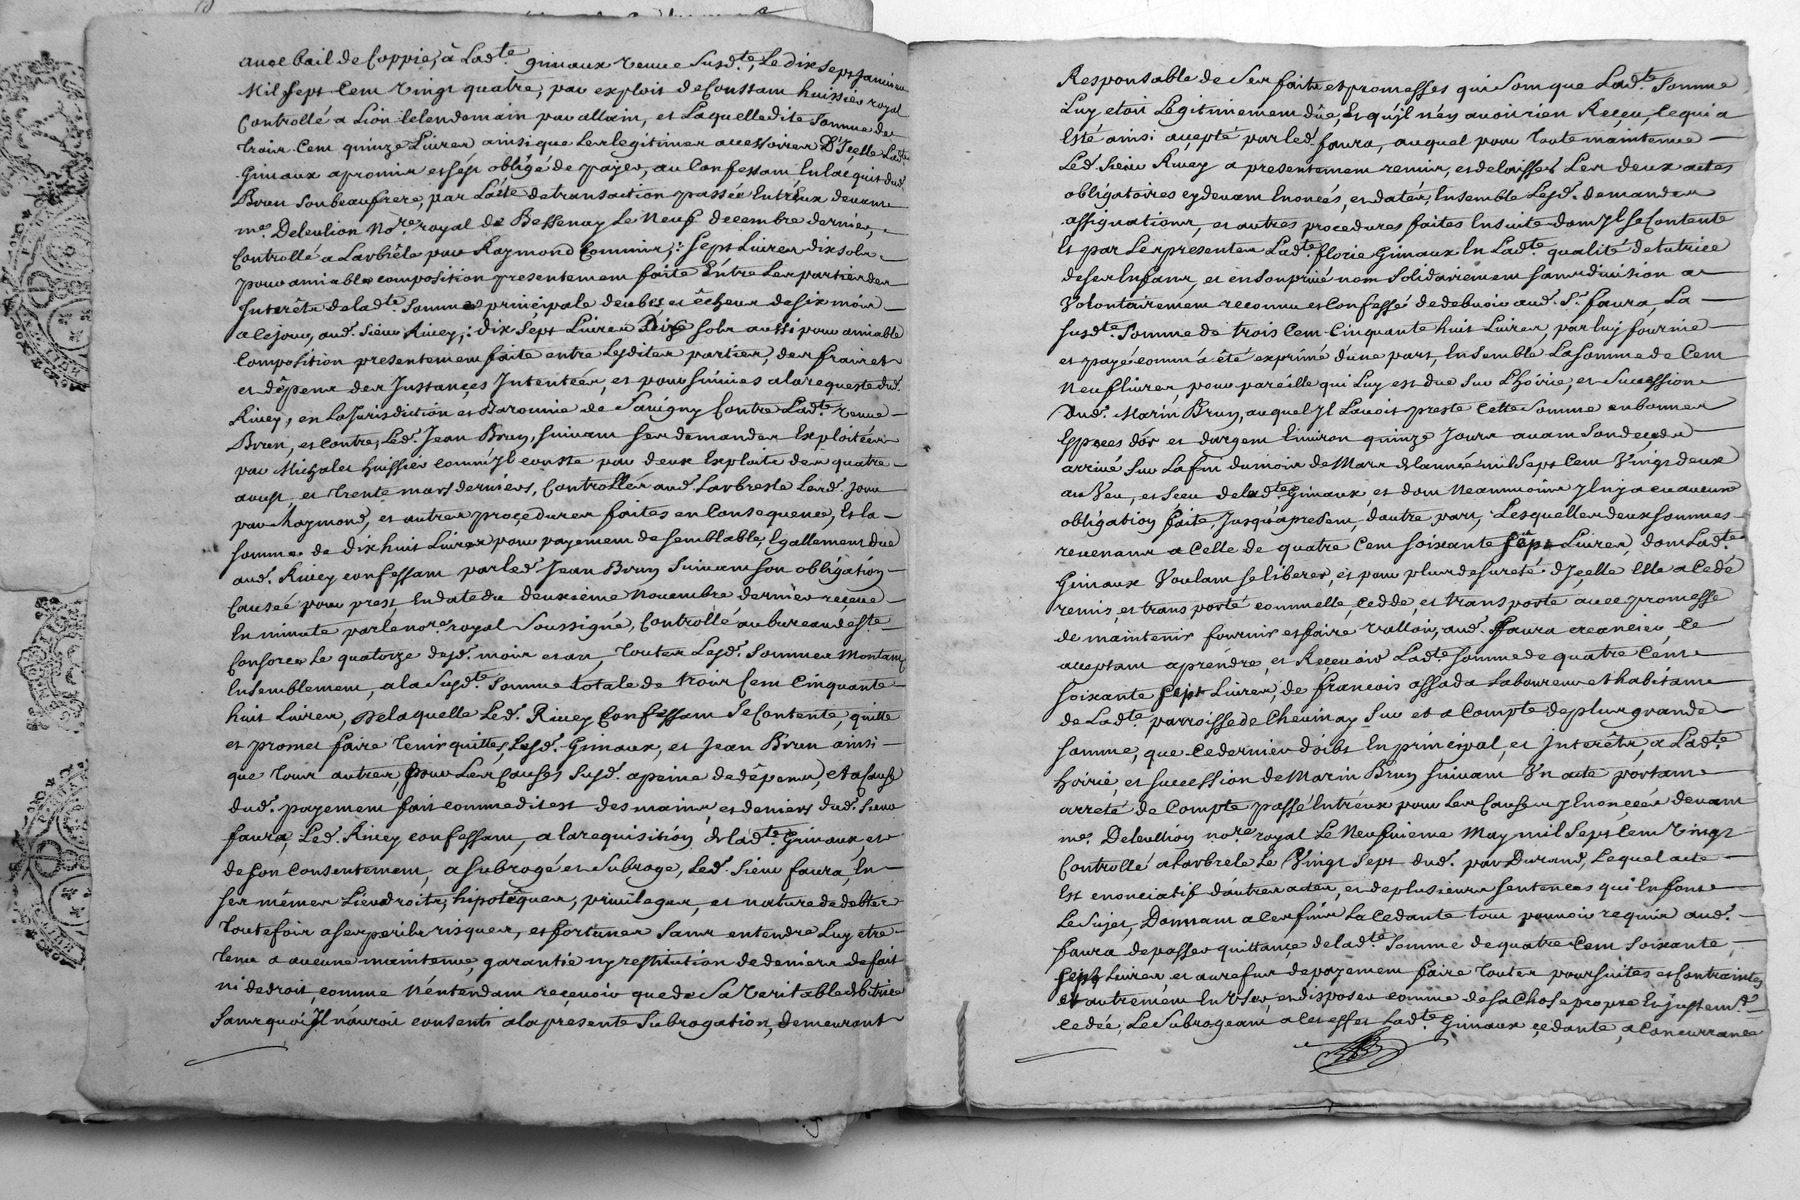 avec bail de Coppie, à Ladte. gimaux veuve Susdte, Le dix sept janvier
Mil sept Cent vingt quatre, par exploit de Coussam huissier royal
Controllé a Lion le lendemain par allain, et Laquelle dite Somme de
trois Cent quinze Livres ainsi que Les legitimes accessoires d'Icelle Ladte
Gimaux a promis et s'est obligé de payer, au Confessant En lacquit dud.
Brun Son beaufrere, par L'acte de transaction passée Entreux devant
me. Deleulion Nore. royal de Bessenay Le Neuf decembre dernier,
Controllé a Larbrêle par Raymond Commis; : Sept Livres dix sols
pour amiable composition presentement faite Entre Les parties des
Interêts de ladte. Somme principale deubs et êcheus de six mois
a ce jour, aud. sieur Rivey; : dix Sept Livres Dix sols aussi pour amiable
Composition presentement faite entre Lesdites parties, des frais et
et dêpens des Instances Intentées, et poursuivies a la requeste dud.
Rivey, en la Jurisdiction et Baronnie de Savigny Contre Ladte. veuve
Brun, et contre Led. Jean Brun, suivant ses demandes Exploitées
par Michalet huissier comm'Il conste par deux Exploits des quatre
aoust, et trente mars derniers, Controllés aud. Larbresle Lesd. jours
par Raymond, et autres procedures faites en Consequence, Et la
somme de dix huit Livres pour payement de semblable, Egallement due
aud. Rivey confessant par led. Jean Brun Suivant son obligation
Causée pour prest En date du deuxième Novembre dernier reçeue
En minute par le nore. royal Soussigné, Controllé au bureau de Ste.
Consorce Le quatorze desd. mois et an, Toutes Lesd. Sommes Montant
Ensemblement, a la Susdte. Somme totale de trois Cent Cinquante
huit Livres, De laquelle Led. Rivey Confessant Se Contente, quitte
et promet faire Tenir quittes, Lesd. Gimaux, et Jean Brun ainsi
que tous autres, pour Les Causes Susd. a peine de dêpens, et a Cause
dud. payement fait comme dit est des mains, et deniers dud. Sieur
faura, Led. Rivey confessant, a la requisition de ladte. Gimaux et
de son Consentement, a Subrogé et Subroge, Led. Sieur faura, En
ses mêmes Lieu droits, hipotêques, privileges, et nature de debte
Toutefois a ses perils risques, et fortunes Sans entendre Luy etre
Tenu a aucune maintenue, garantie ny restitution de deniers de fait
ni de droit, comme N'entendant reçevoir que de Sa Veritable debitrice
Sans quoi Il n'auroit consenti a la presente Subrogation, demeurant
Responsable de Ses faits et promesses qui Sont que Ladte. Somme
Luy etoit Légitimement dûe, Et qu'il n'en avoit rien Reçeu, ce qui a
Esté ainsi açepté par led. faura, auquel pour toute maintenue
Led. Sieur Rivey a presentement remis, et delaissés Les deux actes
obligatoires cy devant Enoncés, et datés, Ensemble Lesd. demandes
assignations, et autres procedures faites Ensuite dont Il se Contente
Et par Les presentes Ladte. florie Gimaux En Ladte. qualité de tutrice
de ses Enfans, et en son privé nom Solidairement sans division a
Volontairement reconnu et Confessé de debvoir aud. Sr. faura, La
susdte. Somme de trois Cent Cinquante huit Livres, par luy fournie
et payé comm'a été exprimé d'une part, Ensemble La somme de Cent
Neuf livres pour pareille qui Luy est due Sur L'hoirie, et Succession
Dud. Marin Brun, auquel Il L'avoit preste Cette Somme en bonnes
Especes d'or et d'argent Environ quinze Jours avant Son decede
arrivé Sur La fin du mois de Mars de l'année mil Sept Cent Vingt deux
au Veu, et Sceu de ladte. Gimaux, et dont Neanmoins Il n'y a eu aucune
obligation faite, Jusqu'apresent, d'autre part, Lesquelles deux sommes
revenant a Celle de quatre Cent soixante sept Livres, dont Ladte.
Gimaux Voulant se liberer, et pour plus de sureté d'Icelle Elle a Cedé
remis, et transporté comme elle Cedde, et transporte avec promesse
de maintenir fournir et faire valloir, aud. Faura creancier, Ce
acceptant a prendre, et Reçevoir Ladte. somme de quatre Cent
soixante sept Livres, de francois assada Laboureur et habitant
de Ladte. parroisse de Chevinay Sur et a Compte de plus grande
somme, que ce dernier doibt En principal, et Interêts, a Ladte.
hoirie, et succession de Marin Brun suivant Un acte portant
arreté de Compte passé Entreux pour Les Causes y Enoncées devant
me. Deleullion nore. royal Le Neufvieme May mil Sept Cent vingt
Controllé a Larbrele Le Vingt Sept dud. par Durand, Lequel acte
Est enonciatif d'autres actes, et de plusieurs sentences qui En font
Le Sujet, Donnant a Ces fins La Cedante tout pouvoir requis aud.
faura de passer quittançe de ladte. Somme de quatre Cent soixante
sept Livres, et au refus de payement faire toutes poursuites et Contraintes
et autrement En User, et disposer comme de sa Chose propre Et justemt.
Cedée, Le Subrogeant a Cet effet Ladte. Gimaux cedante, a Concurrance